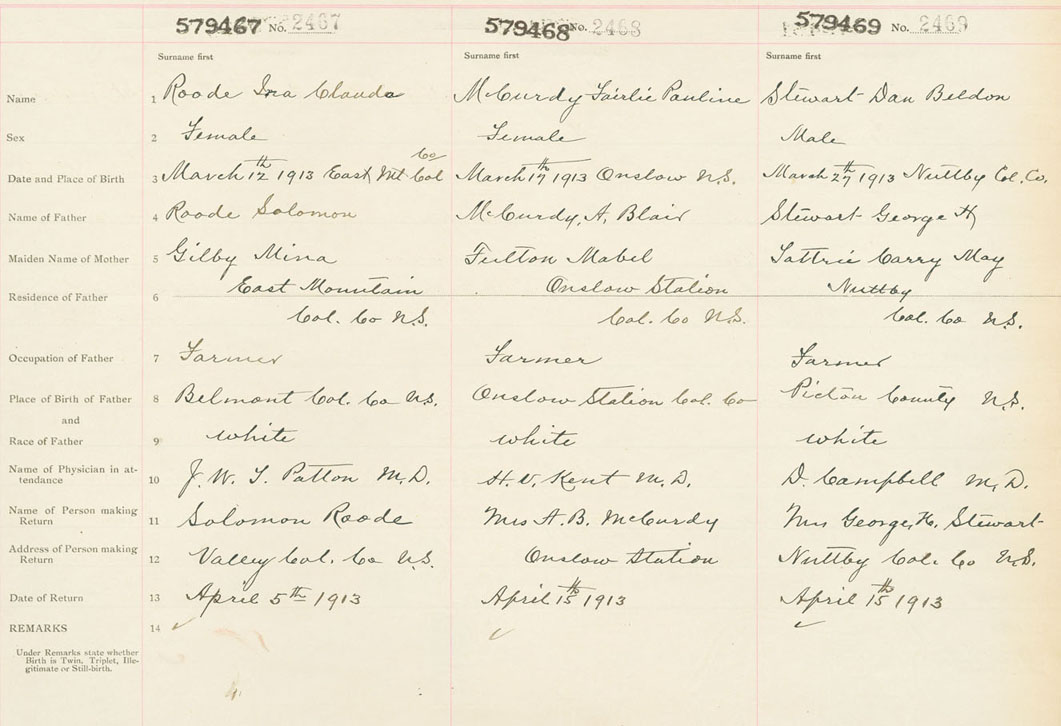 579467 No. 2467 579468 No. 2468 579469 No. 2469
Surname first Surname first Surname first
Name 1 Roode Ina Claude McCurdy Fairlie Pauline Stewart Dan Beldon
Sex 2 Female Female Male
Co
Date and Place of Birth 3 March 12th 1913 East Mt Col March 17th 1913 Onslow N.S. March 27th 1913 Nuttby Col. Co.
Name of Father 4 Roode Solomon McCurdy, A, Blair Stewart George H
Maiden Name of Mother 5 Gilby Mina Fulton Mabel Tattrie Carry May
East Mountain Onslow Station Nuttby
Residence of Father 6
Col. Co N.S. Col. Co N.S. Col. Co N.S.
Occupation of Father 7 Farmer Farmer Farmer
Place of Birth of Father 8 Belmont Col. Co N.S. Onslow Station Col. Co Pictou County N.S.
and
Race of Father 9 white white white
Name of Physician in at-
tendance 10 J. W. T. Patton M.D. H. V. Kent M.D. D. Campbell M.D.
Name of Person making
Return 11 Solomon Roode Mrs A. B. McCurdy Mrs George H. Stewart
Address of Person making
Return 12 Valley Col. Co N.S. Onslow Station Nuttby Col. Co N.S.
Date of Return 13 April 5th 1913 April 15th 1913 April 15th 1913
REMARKS 14
Under Remarks state whether
Birth is Twin. Triplet, Ille-
gitimate or Still-birth.